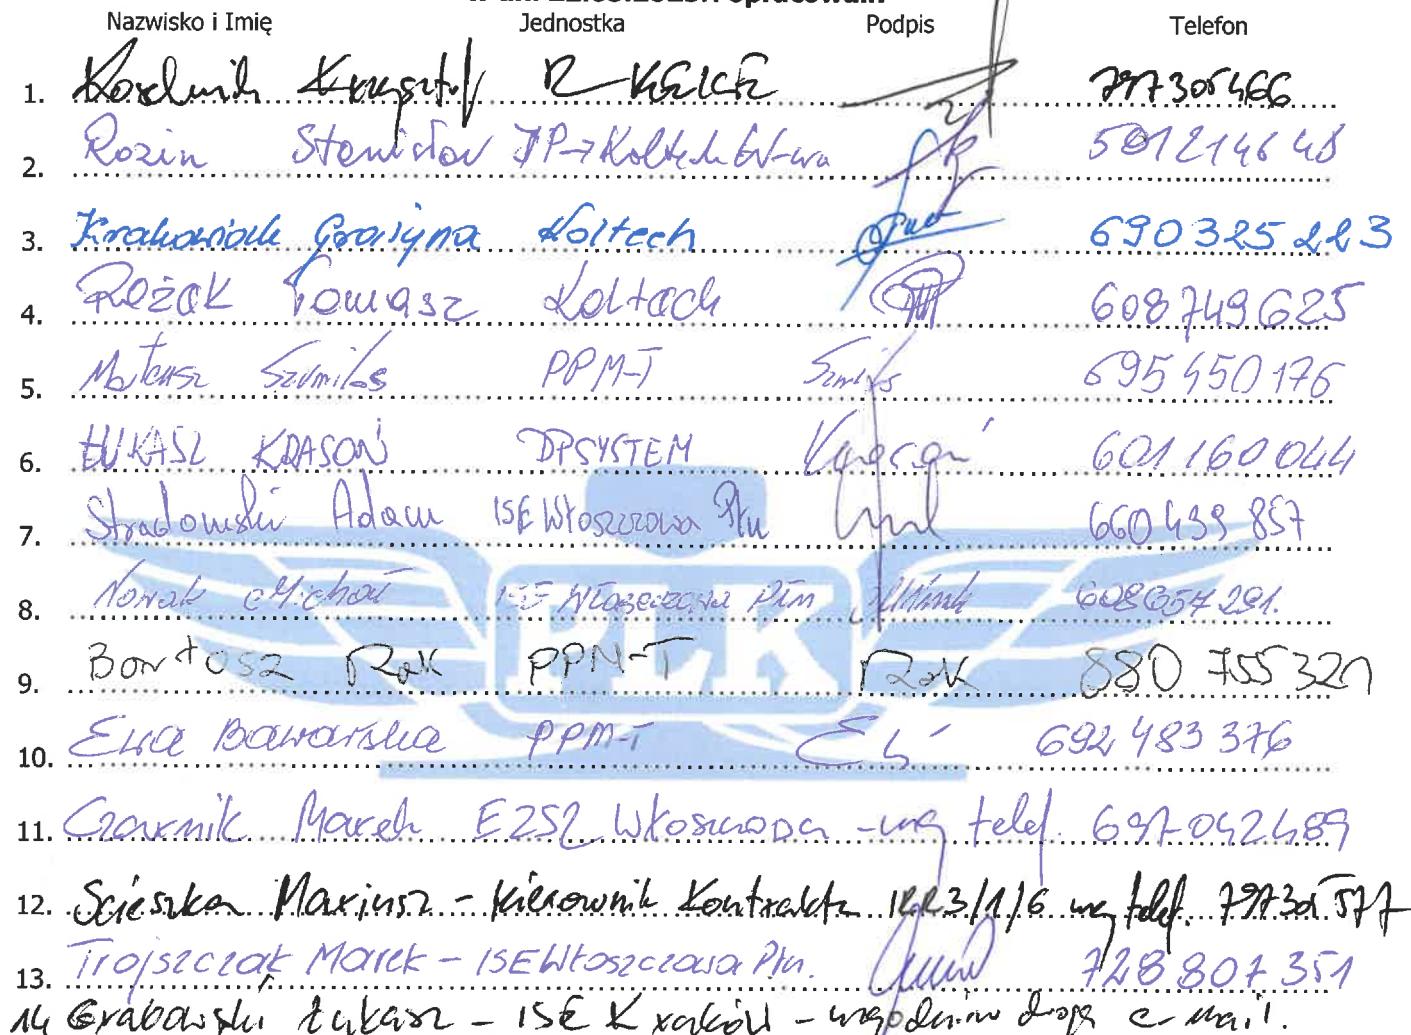 Nazwisko i Imię Jednostka Podpis Telefon
1. Krzysztof 797305466
2. Rozin Stanisław Koltech 501214648
3. Krakowiak Grażyna Koltech 690325223
4. Rożak Tomasz Koltech 608749625
5. Mateusz Szymilas PPM-T 695450176
6. ŁUKASZ KRASOŃ DPSYSTEM Krasoń 601 160 044
7. Stradomski Adam ISE Włoszczowa Płn 660 439 857
8. Nowak Michał ISE Włoszczowa Płn 608657291.
9. Bartosz Rak PPM-T Rak 880 755 321
10. Ewa PPM-T 692 483 376
11. Czarnik Marek Włoszczowa - uzg telef. 697042489
12. Ścieszka Mariusz - Kierownik Kontraktu IRR3/1/6 uzg telef. 797305577
13. Trojszczak Marek - ISE Włoszczowa Płn. 728 807 351
14 Grabowski Łukasz - ISE Kraków - uzgodniono drogą e-mail.
PLK